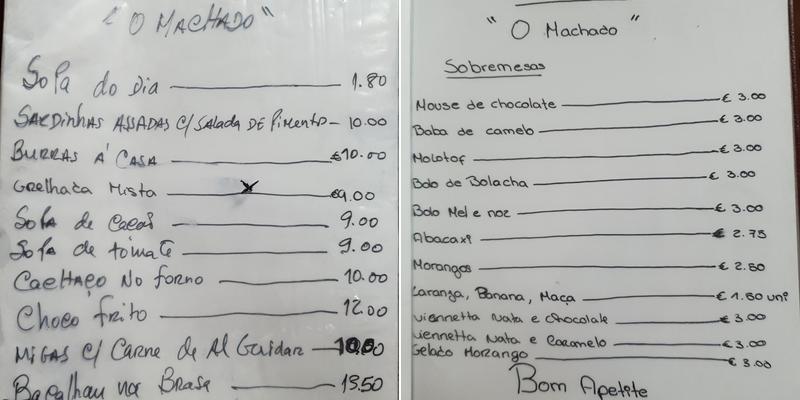 " O MACHADO "
Sopa do dia 1.80
SARDINHAS ASSADAS C/SALADA DE Pimento - 10.00
BURRAS Á CASA €10.00
Grelhada Mista €9.00
Sopa de 9.00
Sopa de tomate 9.00
No forno 10.00
Choco frito 12.00
MIGAS C/ Carne de Al Guidar
Bacalhau na Brasa 13.50
" O Machado "
Sobremesas
Mouse de chocolate € 3.00
Baba de camelo € 3.00
Molotof € 3.00
Bolo de Bolacha € 3.00
Bolo Mel e noz € 3.00
Abacaxi € 2.75
Morangos € 2.50
Laranja, Banana, Maça € 1.50 uni
Viennetta Nata e chocolate € 3.00
Viennetta Nata e Caramelo € 3.00
Gelado Morango € 3.00
Bom Apetite